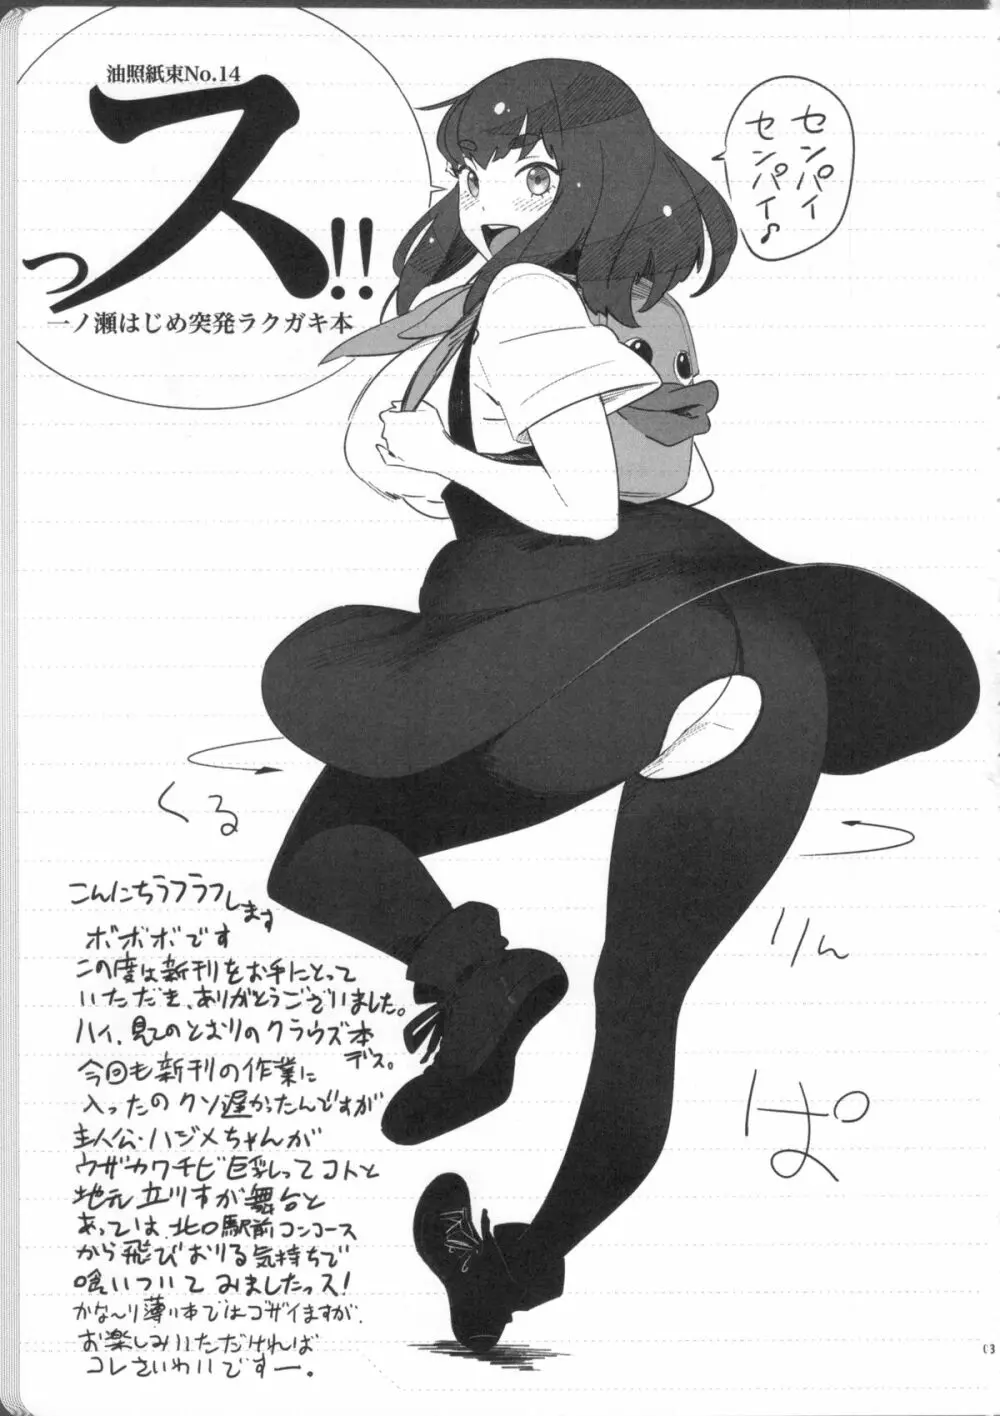 油照紙束No.14
っス!!
一ノ瀬はじめ突発ラクガキ本
センパイ
センパイ♪
くる
りん
ぱ
こんにちラフラフします
ボボボです
この度は新刊をお手にとって
いただき、ありがとうございました。
ハイ、見てのとおりのクラウズ本
デス。
今回も新刊の作業に
入ったのクソ遅かったんですが
主人公・ハジメちゃんが
ウザカワチビ巨乳ってコトと
地元立川市が舞台と
あっては、北口駅前コンコース
から飛びおりる気持ちで
喰いついてみましたっス!
かな〜り薄い本ではゴザイますが、
お楽しみいただければ
コレさいわいですー。
03